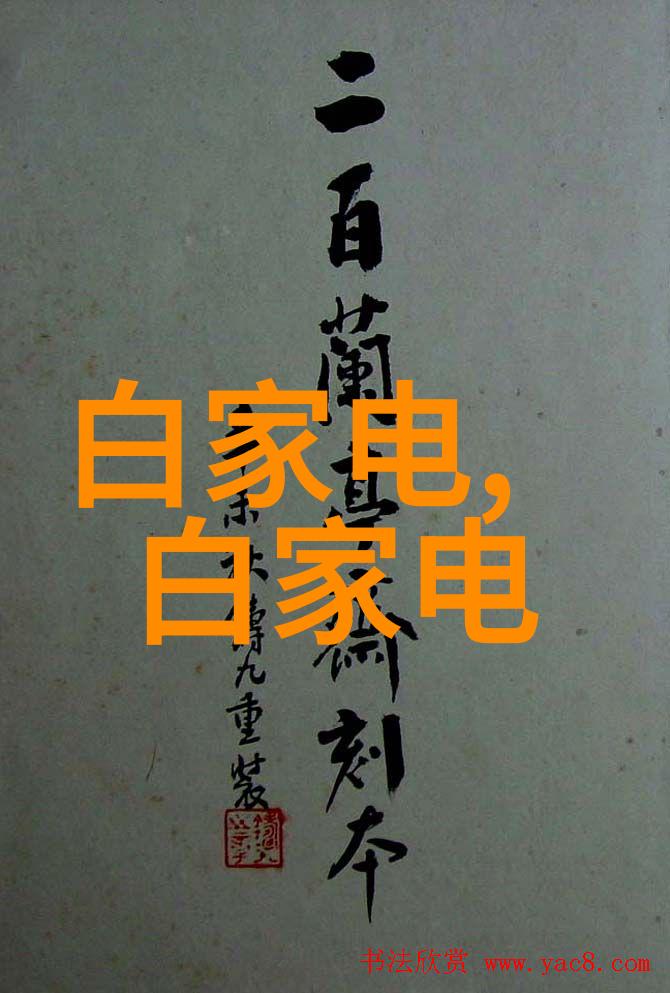 二百蘭亭齋刻本
未秋儔九重裝
白家电,
白家电
书法欣赏 www.yac8.com